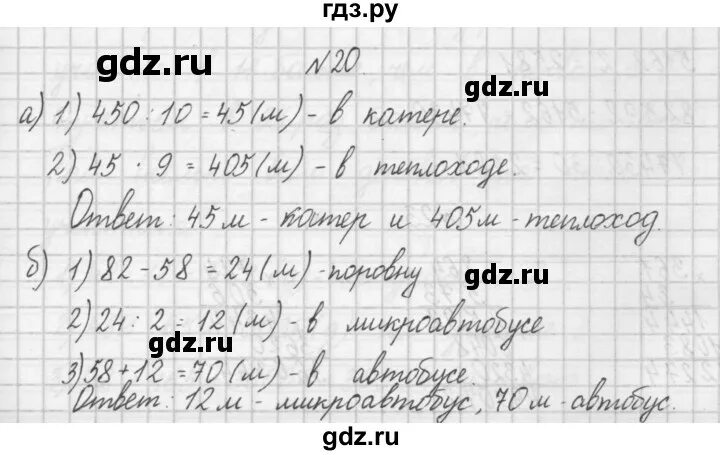 гдз.ру
gdz.ru
№20.
gdz.ru
а) 1) 450 : 10 = 45 (м) - в катере.
2) 45 · 9 = 405 (м) - в теплоходе.
Ответ: 45 м - катер и 405 м - теплоход.
б) 1) 82 - 58 = 24 (м) - поровну
gdz.ru
2) 24 : 2 = 12 (м) - в микроавтобусе
gdz.ru
3) 58 + 12 = 70 (м) - в автобусе.
Ответ: 12 м - микроавтобус, 70 м - автобус.
gdz.ru